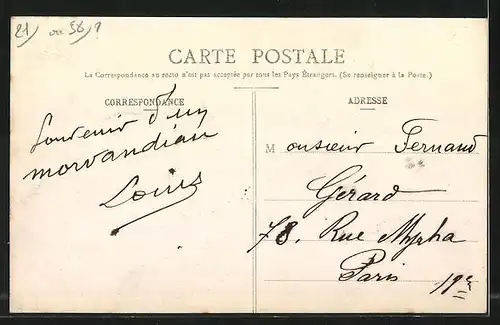 21/ ou 58/ ?
CARTE POSTALE
La Correspondance au recto n'est pas acceptée par tous les Pays Étrangers. (Se renseigner à la Poste.)
CORRESPONDANCE
Souvenir d'un
morvandiau
Louis
ADRESSE
Monsieur Fernand
Gérard
78, Rue Myrha
Paris 18e